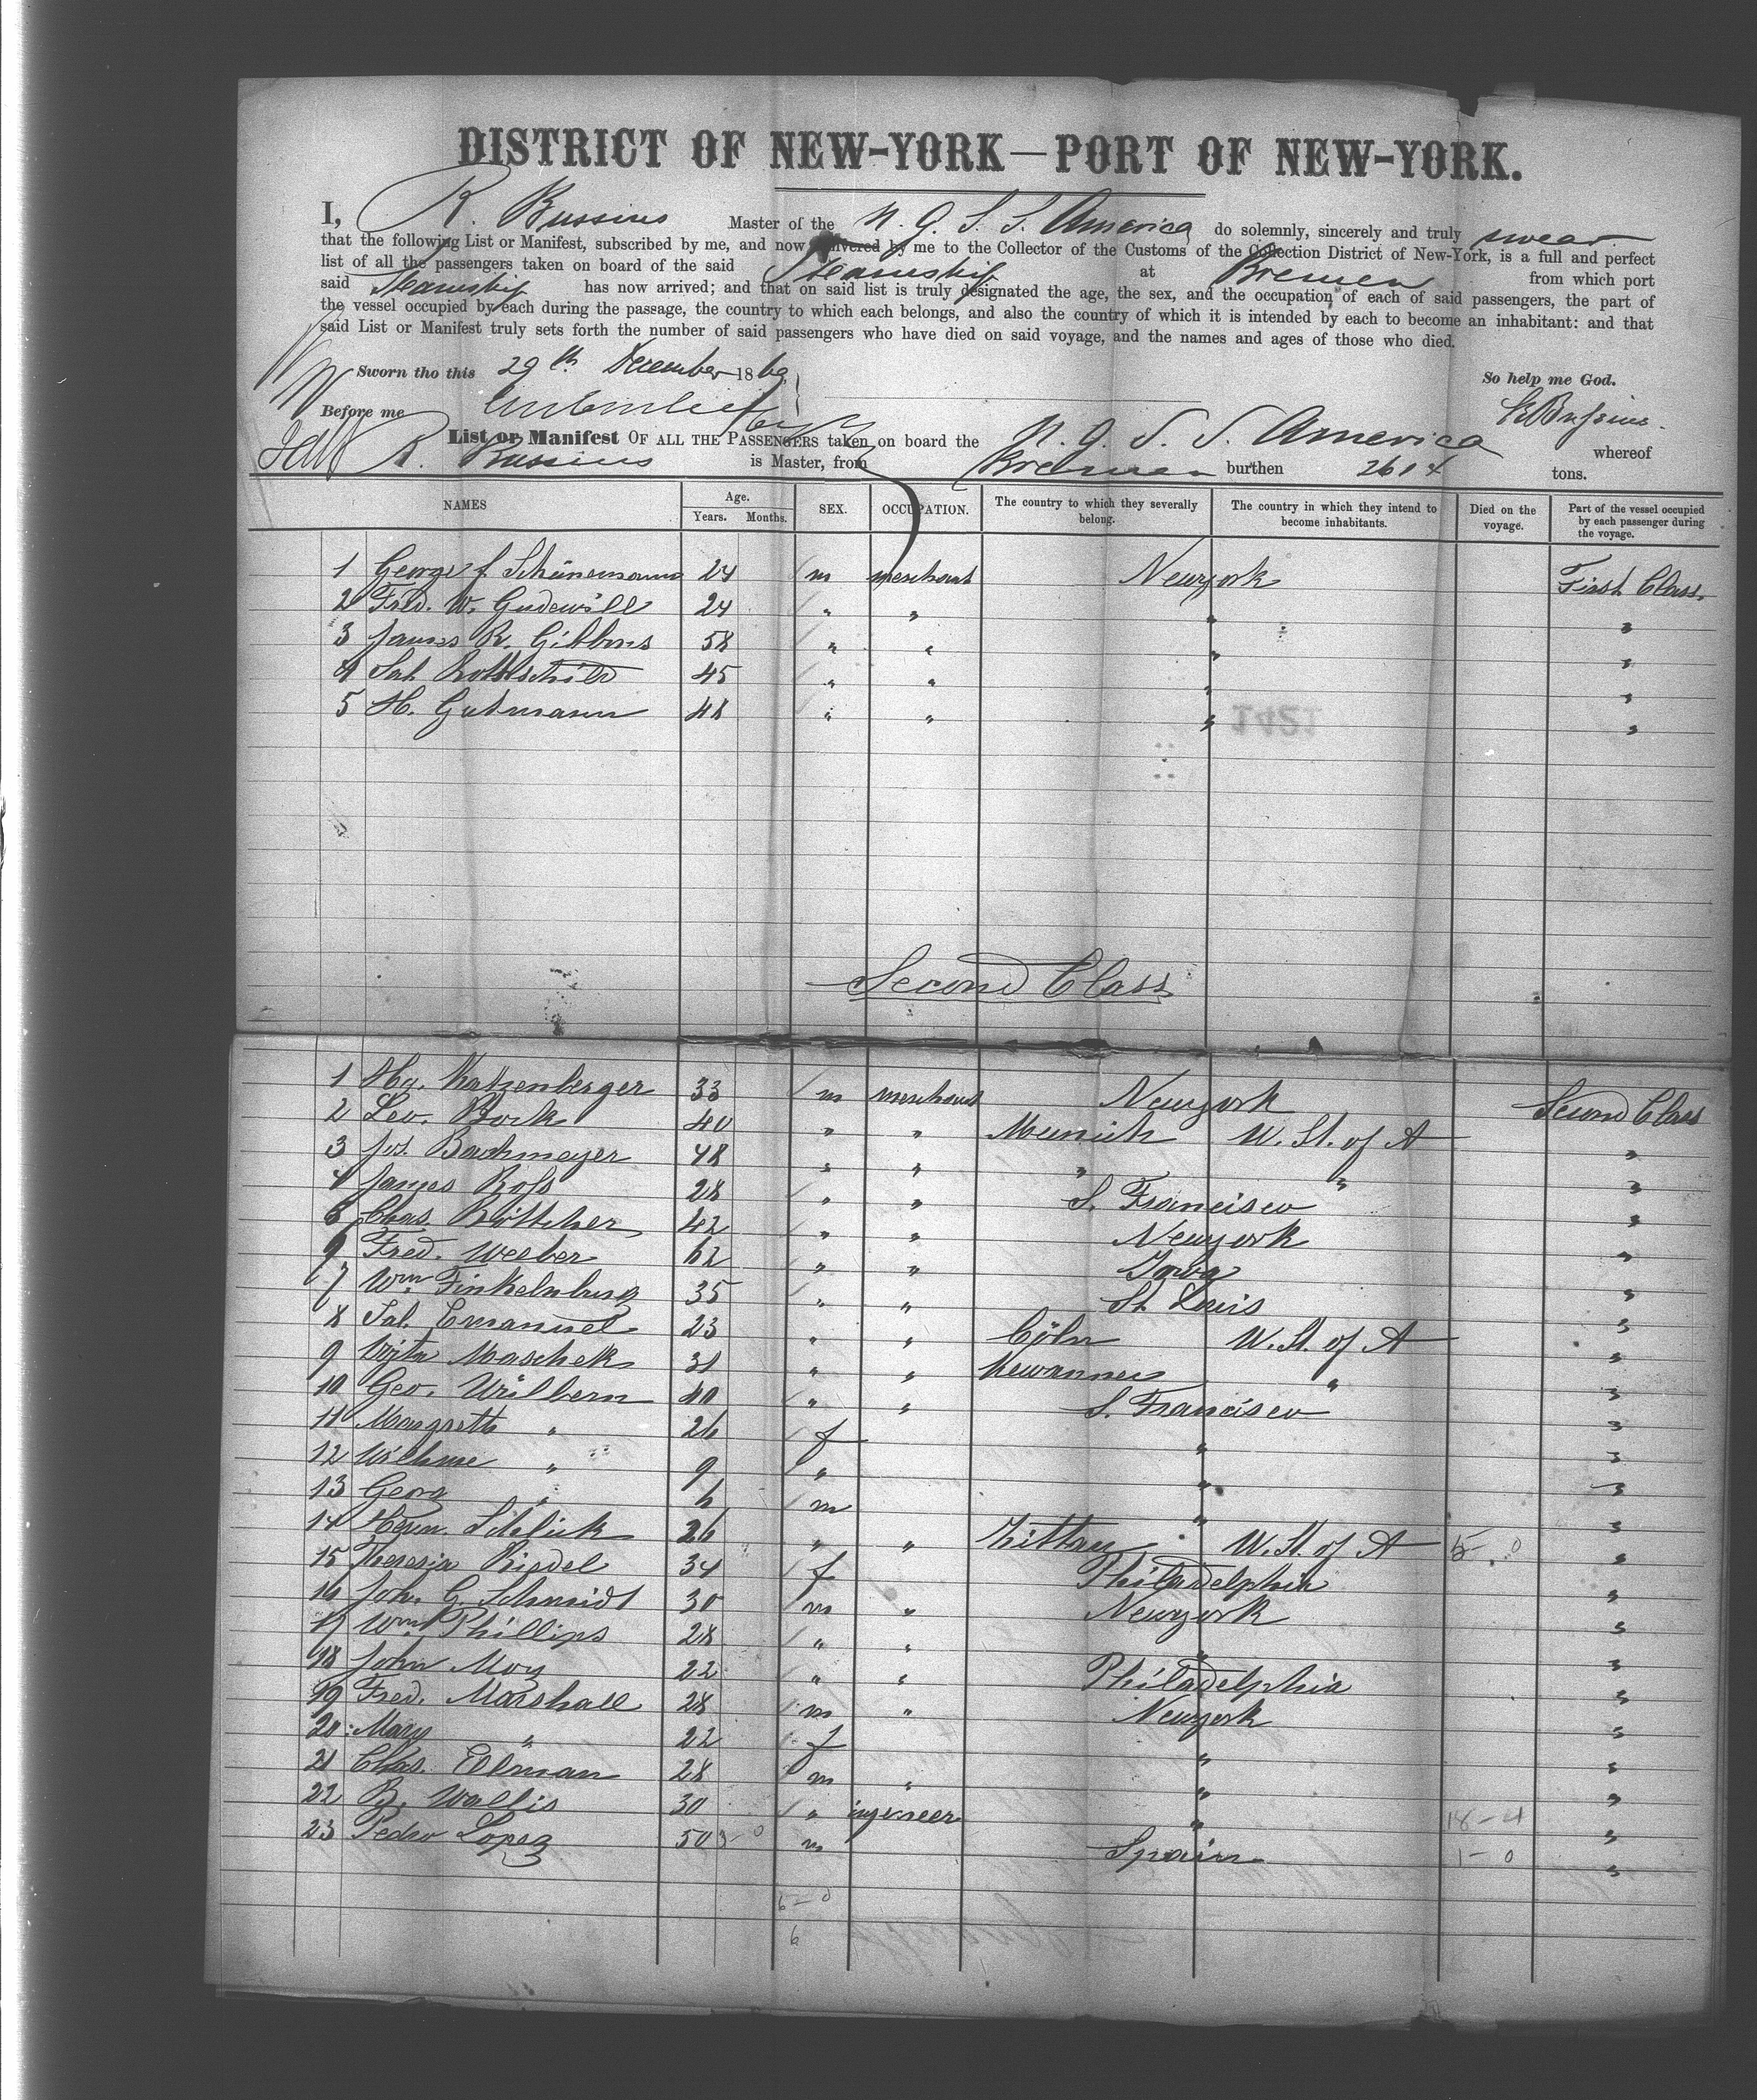 DISTRICT OF NEW-YORK—PORT OF NEW-YORK.
I, R. Bussius Master of the N. G. S. S. America do solemnly, sincerely and truly swear
that the following List or Manifest, subscribed by me, and now delivered by me to the Collector of the Customs of the Collection District of New-York, is a full and perfect
list of all the passengers taken on board of the said Steamship at Bremen from which port
said Steamship has now arrived; and that on said list is truly designated the age, the sex, and the occupation of each of said passengers, the part of
the vessel occupied by each during the passage, the country to which each belongs, and also the country of which it is intended by each to become an inhabitant: and that
said List or Manifest truly sets forth the number of said passengers who have died on said voyage, and the names and ages of those who died.
Sworn tho this 29th December 1869 So help me God.
Before me R Bussius.
List or Manifest OF ALL THE PASSENGERS taken on board the N. G. S. S. America whereof
R. Bussius is Master, from Bremen burthen 2614 tons.
NAMES Age. Years. Months. SEX. OCCUPATION. The country to which they severally belong. The country in which they intend to become inhabitants. Died on the voyage. Part of the vessel occupied by each passenger during the voyage.
1 George f. Schünemann 24 m merchant Newyork First Class.
2 Fred. W. Gudewill 24 " " " "
3 James R. Gibbons 58 " " " "
4 Sal. Rothschild 45 " " " "
5 H. Gutmann 48 " " " "
Second Class
1 Hy. Katzenberger 33 m merchant Newyork Second Class
2 Leo. Bock 40 " " Munich U. St. of A "
3 Jos. Bachmeyer 48 " " " " "
4 James Ross 28 " " S. Francisco "
5 Chas. Böttcher 42 " " Newyork "
6 Fred. Weeber 62 " " Iowa "
7 Wm Finkelnburg 35 " " St. Louis "
8 Sal. Emanuel 23 " " Cöln U. St. of A "
9 Vojta Maschek 31 " " Kewannee " "
10 Geo. Uillbern 40 " " S. Francisco "
11 Margreth " 26 f " "
12 Wilhme " 9 " " "
13 Georg " 6 m " "
14 Herm. 26 " " Zittau U. St. of A 5-0 "
15 Theresia Riedel 34 f Philadelphia "
16 Joh. G. Schmidt 30 m " Newyork "
17 Wm Phillips 28 " " " "
18 John Moy 22 " " Philadelphia "
19 Fred. Marshall 28 m " Newyork "
20 Mary " 22 f " "
21 Chas. Ellman 28 m " " "
22 B. Wallis 30 " ingeneer " 18-4 "
23 Pedro Lopez 50 3-0 m Spain 1-0 "
6-0
6